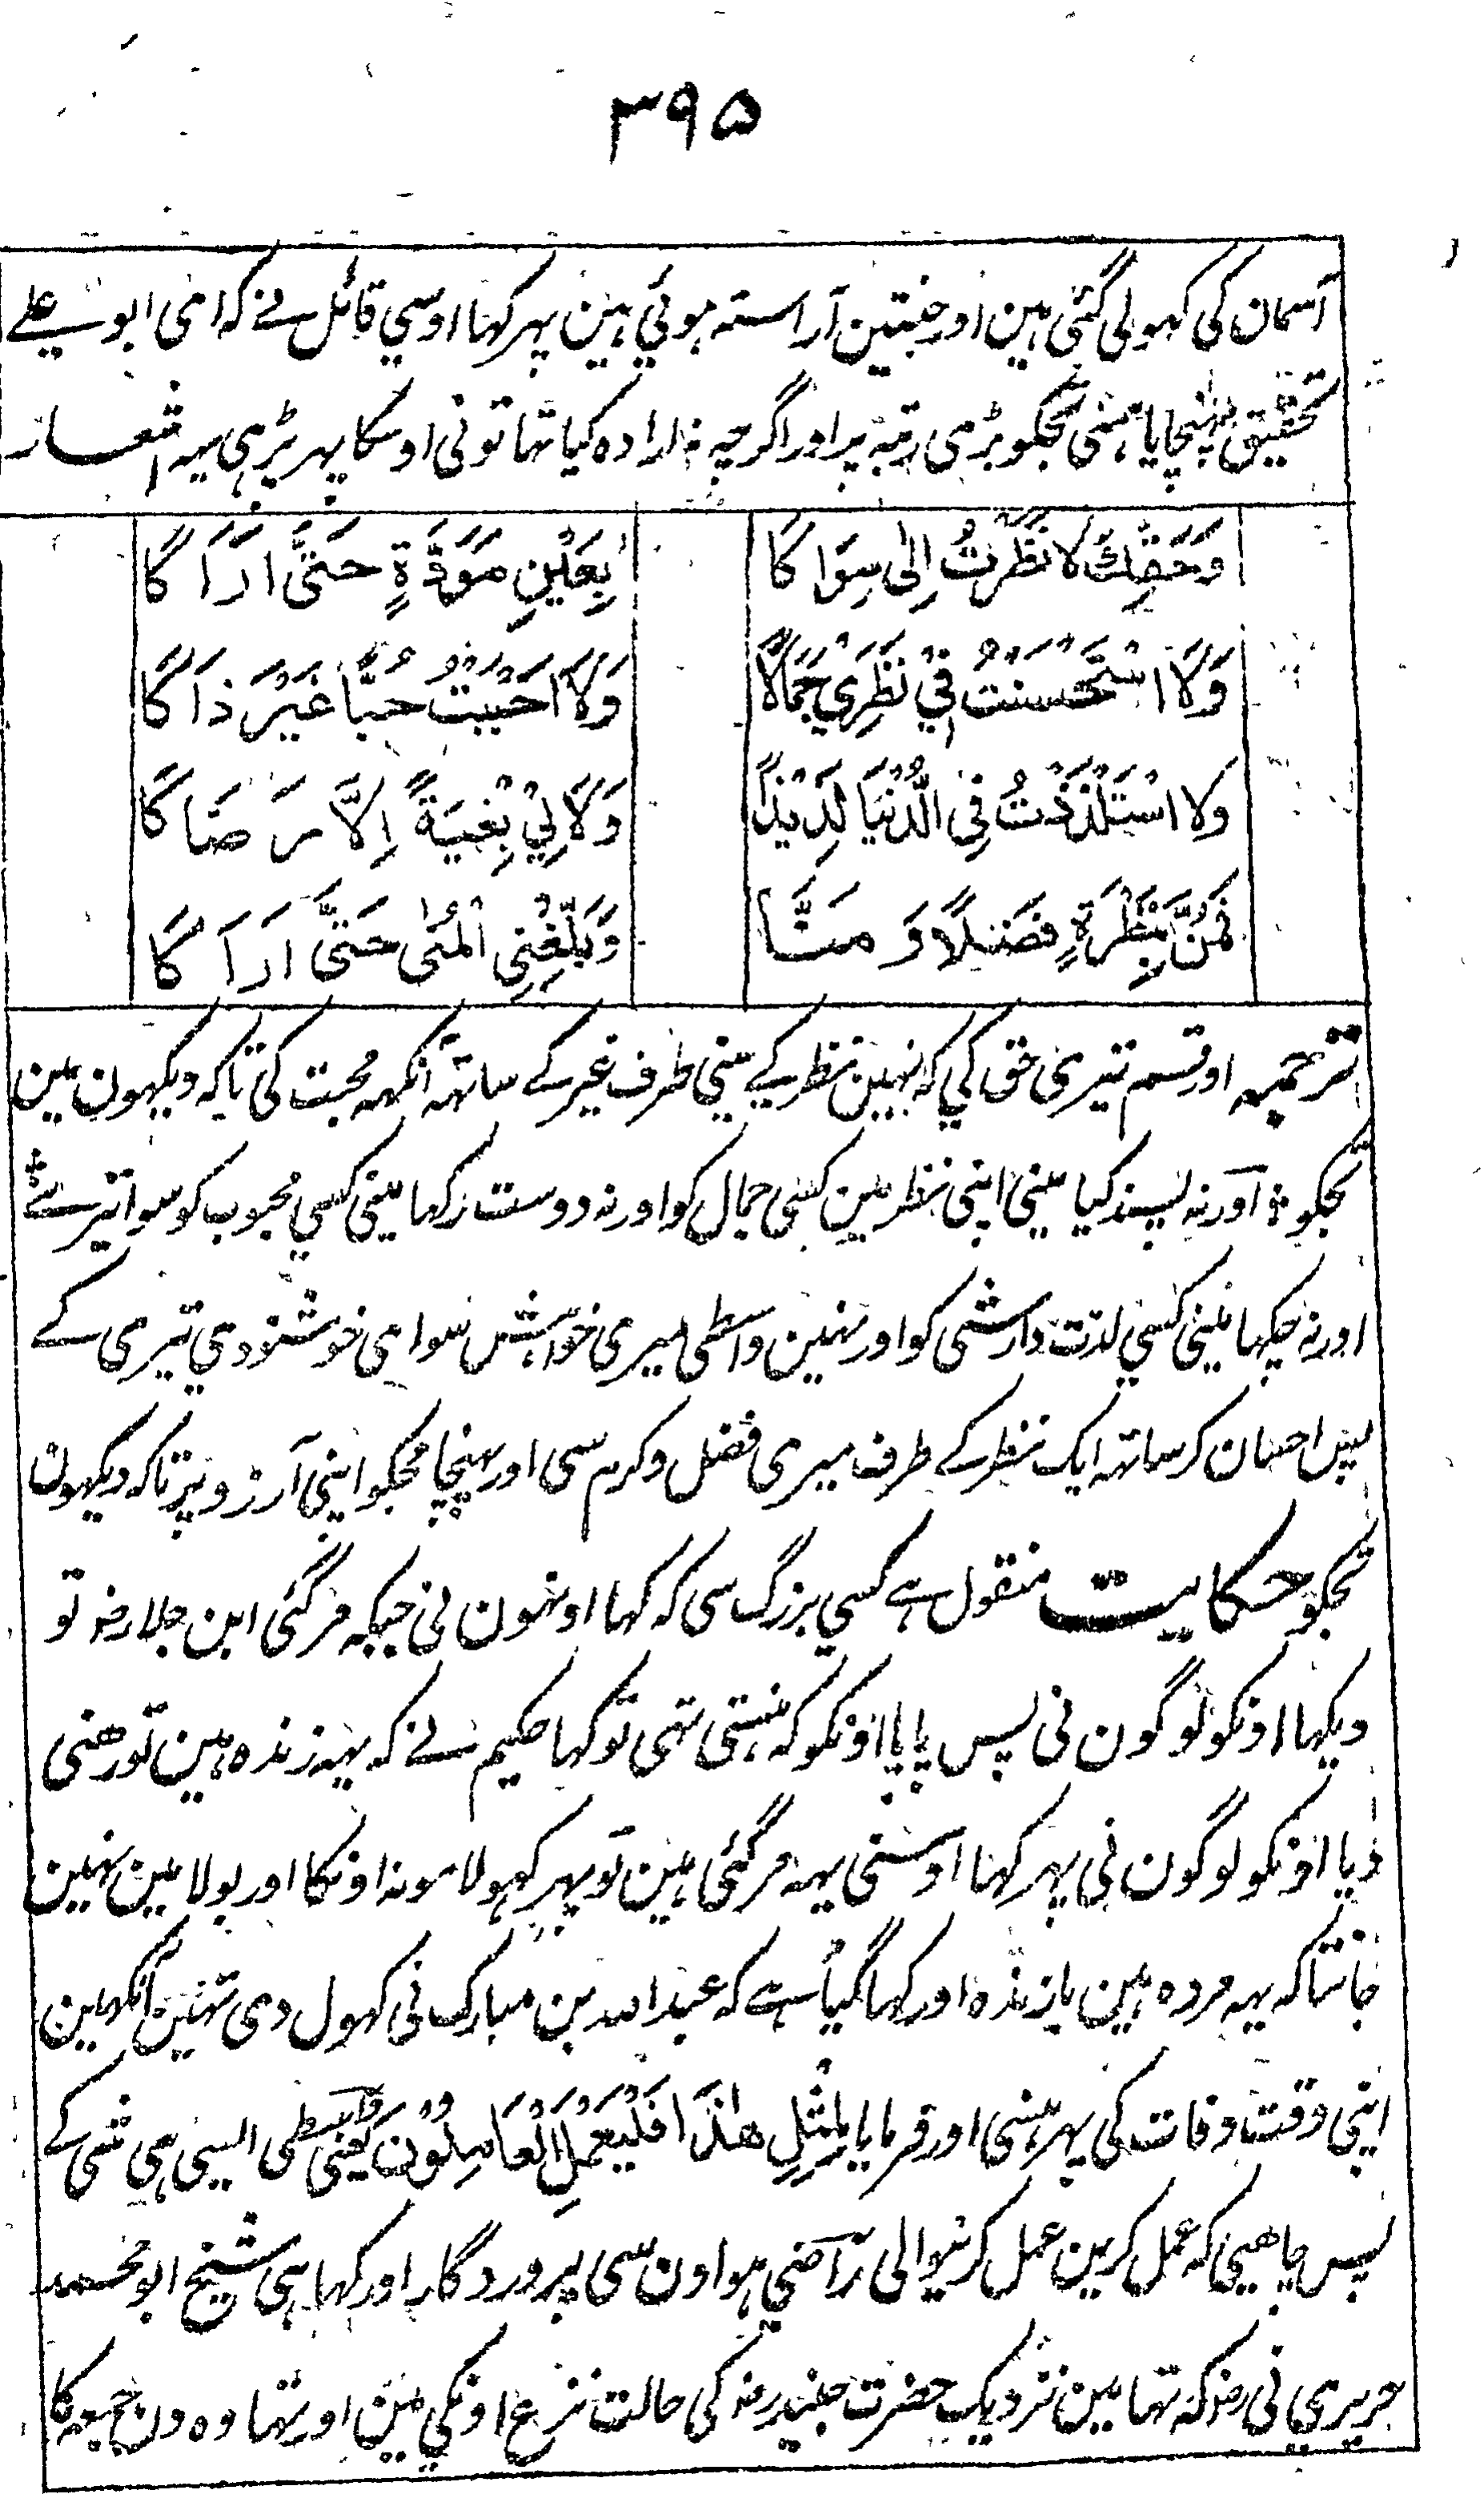 ۳۹۵
آسمان کی کہولی گئی ہین اور جنتین آراستہ ہوئي ہین پہر کہا اوسي قائل نے کہ امی ابو علے
تحقیق پہنچایا ہمنی تجکو بڑمی رتبہ پر اور اگرچہ نہ ارادہ کیا تہا تونی اوسکا پہر پڑہی یہہ اشعار
وَحَقِّكَ لَا نَظَرْتُ اِلٰى سِوَاكَا بِعَيْنِ مَوَدَّةٍ حَتّٰى اَرَاكَا
وَلَا اسْتَحْسَنْتُ فِيْ نَظَرِيْ جَمَالًا وَلَا اَحْبَبْتُ حُبًّا غَيْرَ ذَاكَا
وَلَا اسْتَلْذَذْتُ فِى الدُّنْيَا لَذِيْذًا وَلَا لِيْ بُغْيَةً اِلَّا رَضَاكَا
فَمُنَّ بِنَظْرَةٍ فَضْلًا وَ مَنًّا وَبَلِّغْنِى الْمُنٰى حَتّٰى اَرَاكَا
ترجمہ اور قسم تیری حق کي کہ نہین نظر کے مینی طرف غیر کے ساتہہ آنکہہ محبت کی تاکہ دیکہون مین
تجکو اور نہ پسند کیا مینی اپنی نظر مین کسی جمال کو اور نہ دوست رکہا مینی کسي محبوب کو سوا تیرے
اور نہ چکہا مینی کسي لذت دار شی کو اور نہین واسطی میری خواہش سوامی خوشنودي تیری کے
پس احسان کر ساتہہ ایک نظر کے طرف میری فضل و کرم سی اور پہنچا مجکو اپنی آرزو پر تاکہ دیکہون
تجکو حکایت منقول ہے کسي بزرگ سی کہ کہا اونہون نی جبکہ مر گئی ابن جلا رضہ تو
دیکہا اونکو لوگون نی پس پایا اونکو کہ ہنستی تہی تو کہا حکیم نے کہ یہہ زندہ ہین تورهنی
دیا اونکو لوگون نی پہر کہا اوسنی یہہ مر گئی ہین تو پہر کہولا مونہ اونکا اور بولا مین نہین
جانتا کہ یہہ مردہ ہین یا زندہ اور کہا گیا ہے کہ عبد اللہ بن مبارک نی کہول دی تہین آنکہین
اپنی وقت وفات کی پہر ہنسی اور فرمایا لِمِثْلِ هٰذَا فَلْيَعْمَلِ الْعَامِلُوْنَ یعنی واسطی ایسی ہی شی کے
پس چاہیی کہ عمل کرین عمل کرنیوالی راضي ہو اون سی پروردگار اور کہا ہی شیخ ابو محمد
جریري نی رضہ کہ تہا مین نزدیک حضرت جنید رضہ کی حالت نزع اونکي مین اور تہا وہ دن جمعہ کا